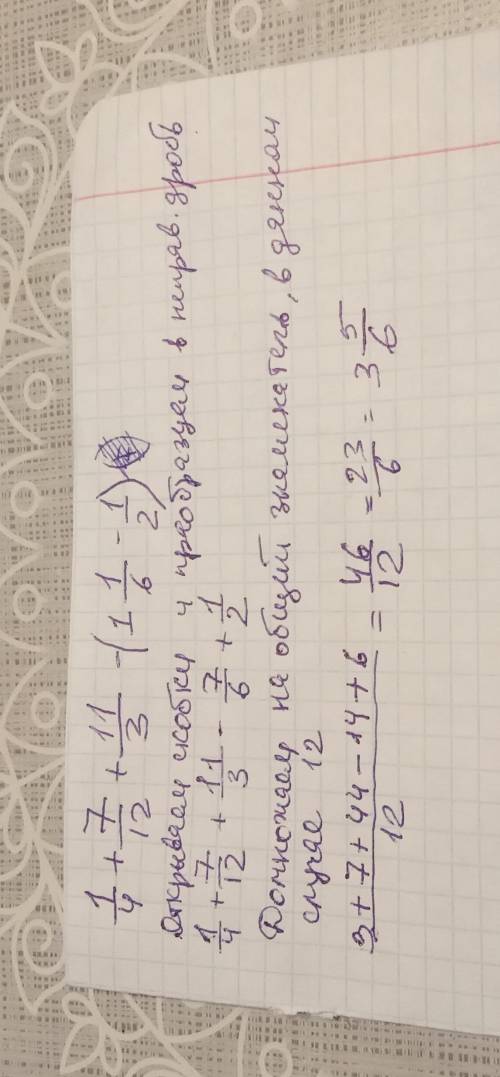 1/4 + 7/12 + 11/3 - (1 1/6 - 1/2)
Открываем скобки и преобразуем в неправ. дробь
1/4 + 7/12 + 11/3 - 7/6 + 1/2
Домножаем на общий знаменатель, в данном
случае 12
3 + 7 + 44 - 14 + 6 / 12 = 46/12 = 23/6 = 3 5/6